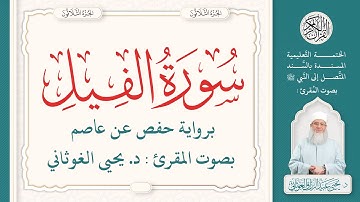 الجزء الثلاثون
الجزء الثلاثون
سُورَةُ الفِيلِ
برواية حفص عن عاصم
بصوت المقرئ : د. يحيى الغوثاني
القرآن الكريم
الختمة التعليمية
المسندة بالسَّند
المتَّصل إلى النَّبي ﷺ
بصوت المُقرئ :
د. يحيى عبد الرزاق الغوثاني